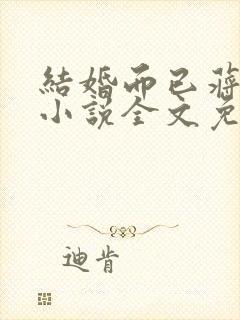 結婚而已蒋
小說全文免
迪肯